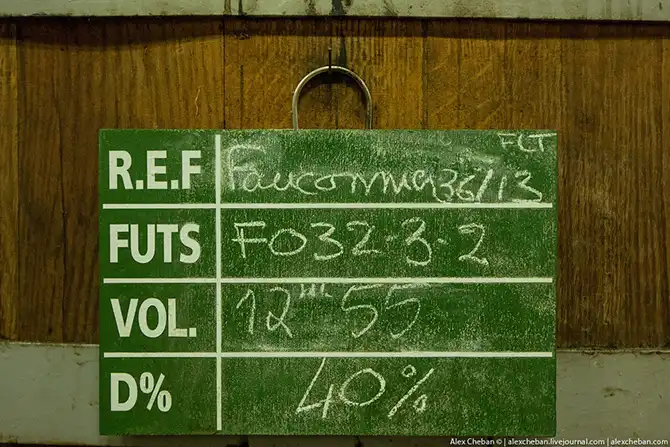 FLT
R.E.F Fauconnier 36/13
FUTS F032-3-2
VOL. 12 HL 55
D% 40%
Alex Cheban © | alexcheban.livejournal.com | alexcheban.com